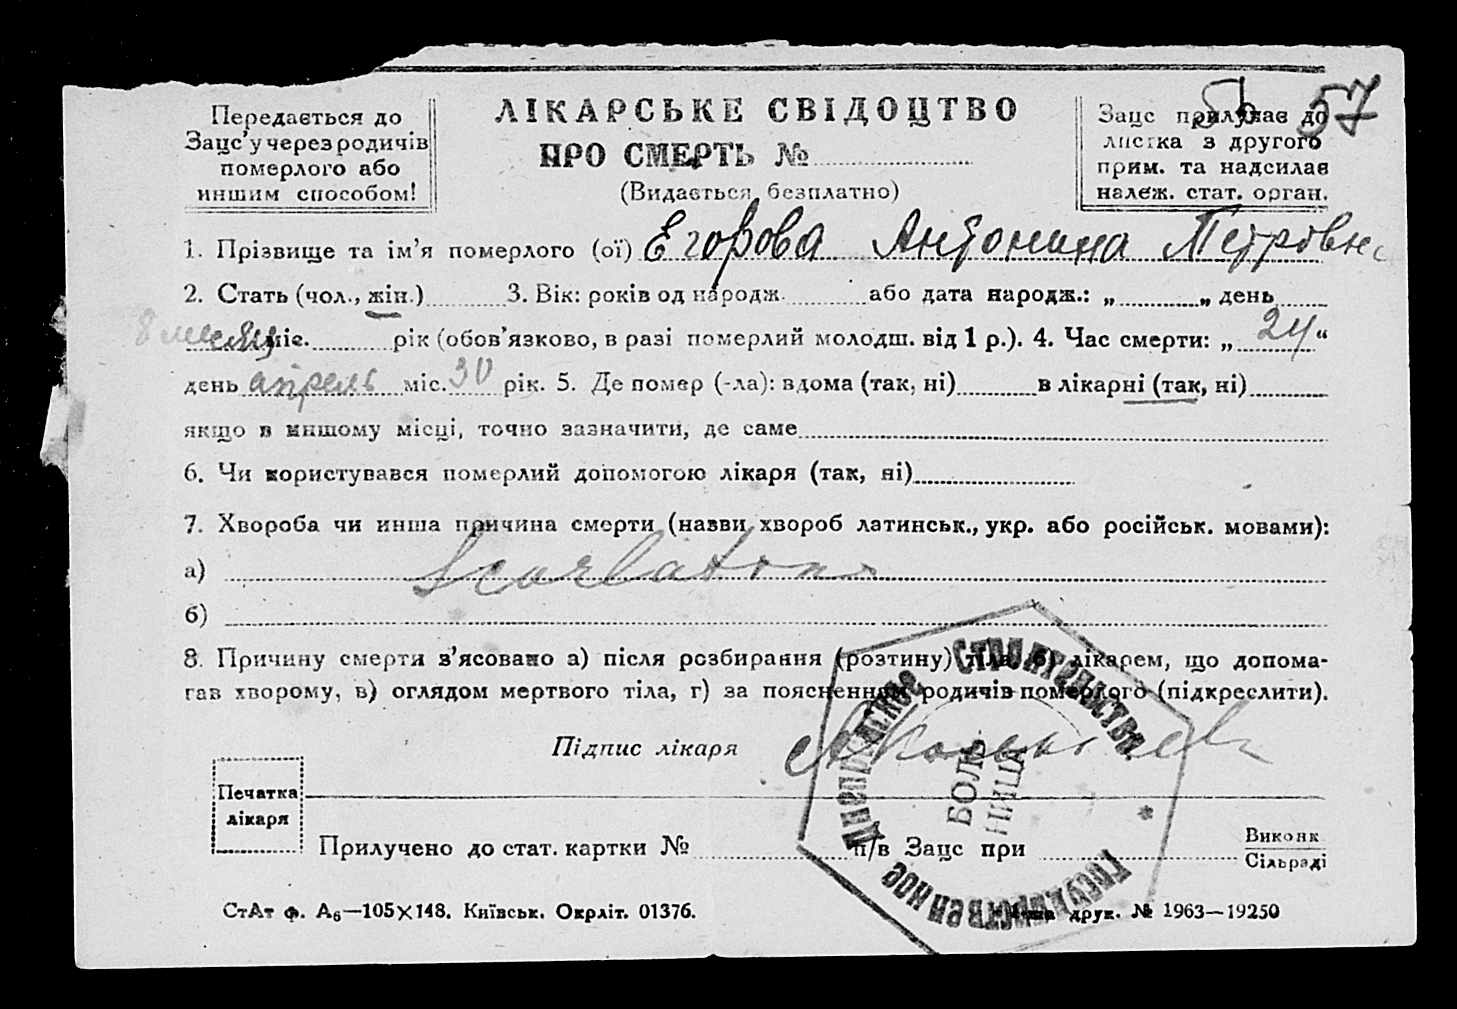 57
Передається до
Зацс'у через родичів
померлого або
иншим способом!
ЛІКАРСЬКЕ СВІДОЦТВО
ПРО СМЕРТЬ №
(Видається безплатно)
Зацс прилучає до
листка з другого
прим. та надсилає
належ. стат. орган.
1. Прізвище та ім'я померлого (ої) Егорова Антонина Петровн
2. Стать (чол., жін.) 3. Вік: років од народж. або дата народж.: „ „ день
8 месяц міс. рік (обов'язково, в разі померлий молодш. від 1 р.). 4. Час смерти: „ 24 “
день апрель міс. 30 рік. 5. Де помер (-ла): вдома (так, ні) в лікарні (так, ні)
якщо в иншому місці, точно зазначити, де саме
6. Чи користувався померлий допомогою лікаря (так, ні)
7. Хвороба чи инша причина смерти (назви хвороб латинськ., укр. або російськ. мовами):
а) Scarlatina
б)
8. Причину смерти з'ясовано а) після розбирання (розтину) тіла, б) лікарем, що допома-
гав хворому, в) оглядом мертвого тіла, г) за поясненням родичів померлого (підкреслити).
Підпис лікаря
Печатка
лікаря
Днепровское Государственное Строительство
БОЛЬ
НИЦА
Прилучено до стат. картки № п/в Зацс при Виконк
Сільраді
СтАт ф. А6—105×148. Київськ. Окрліт. 01376. друк. № 1963—19250